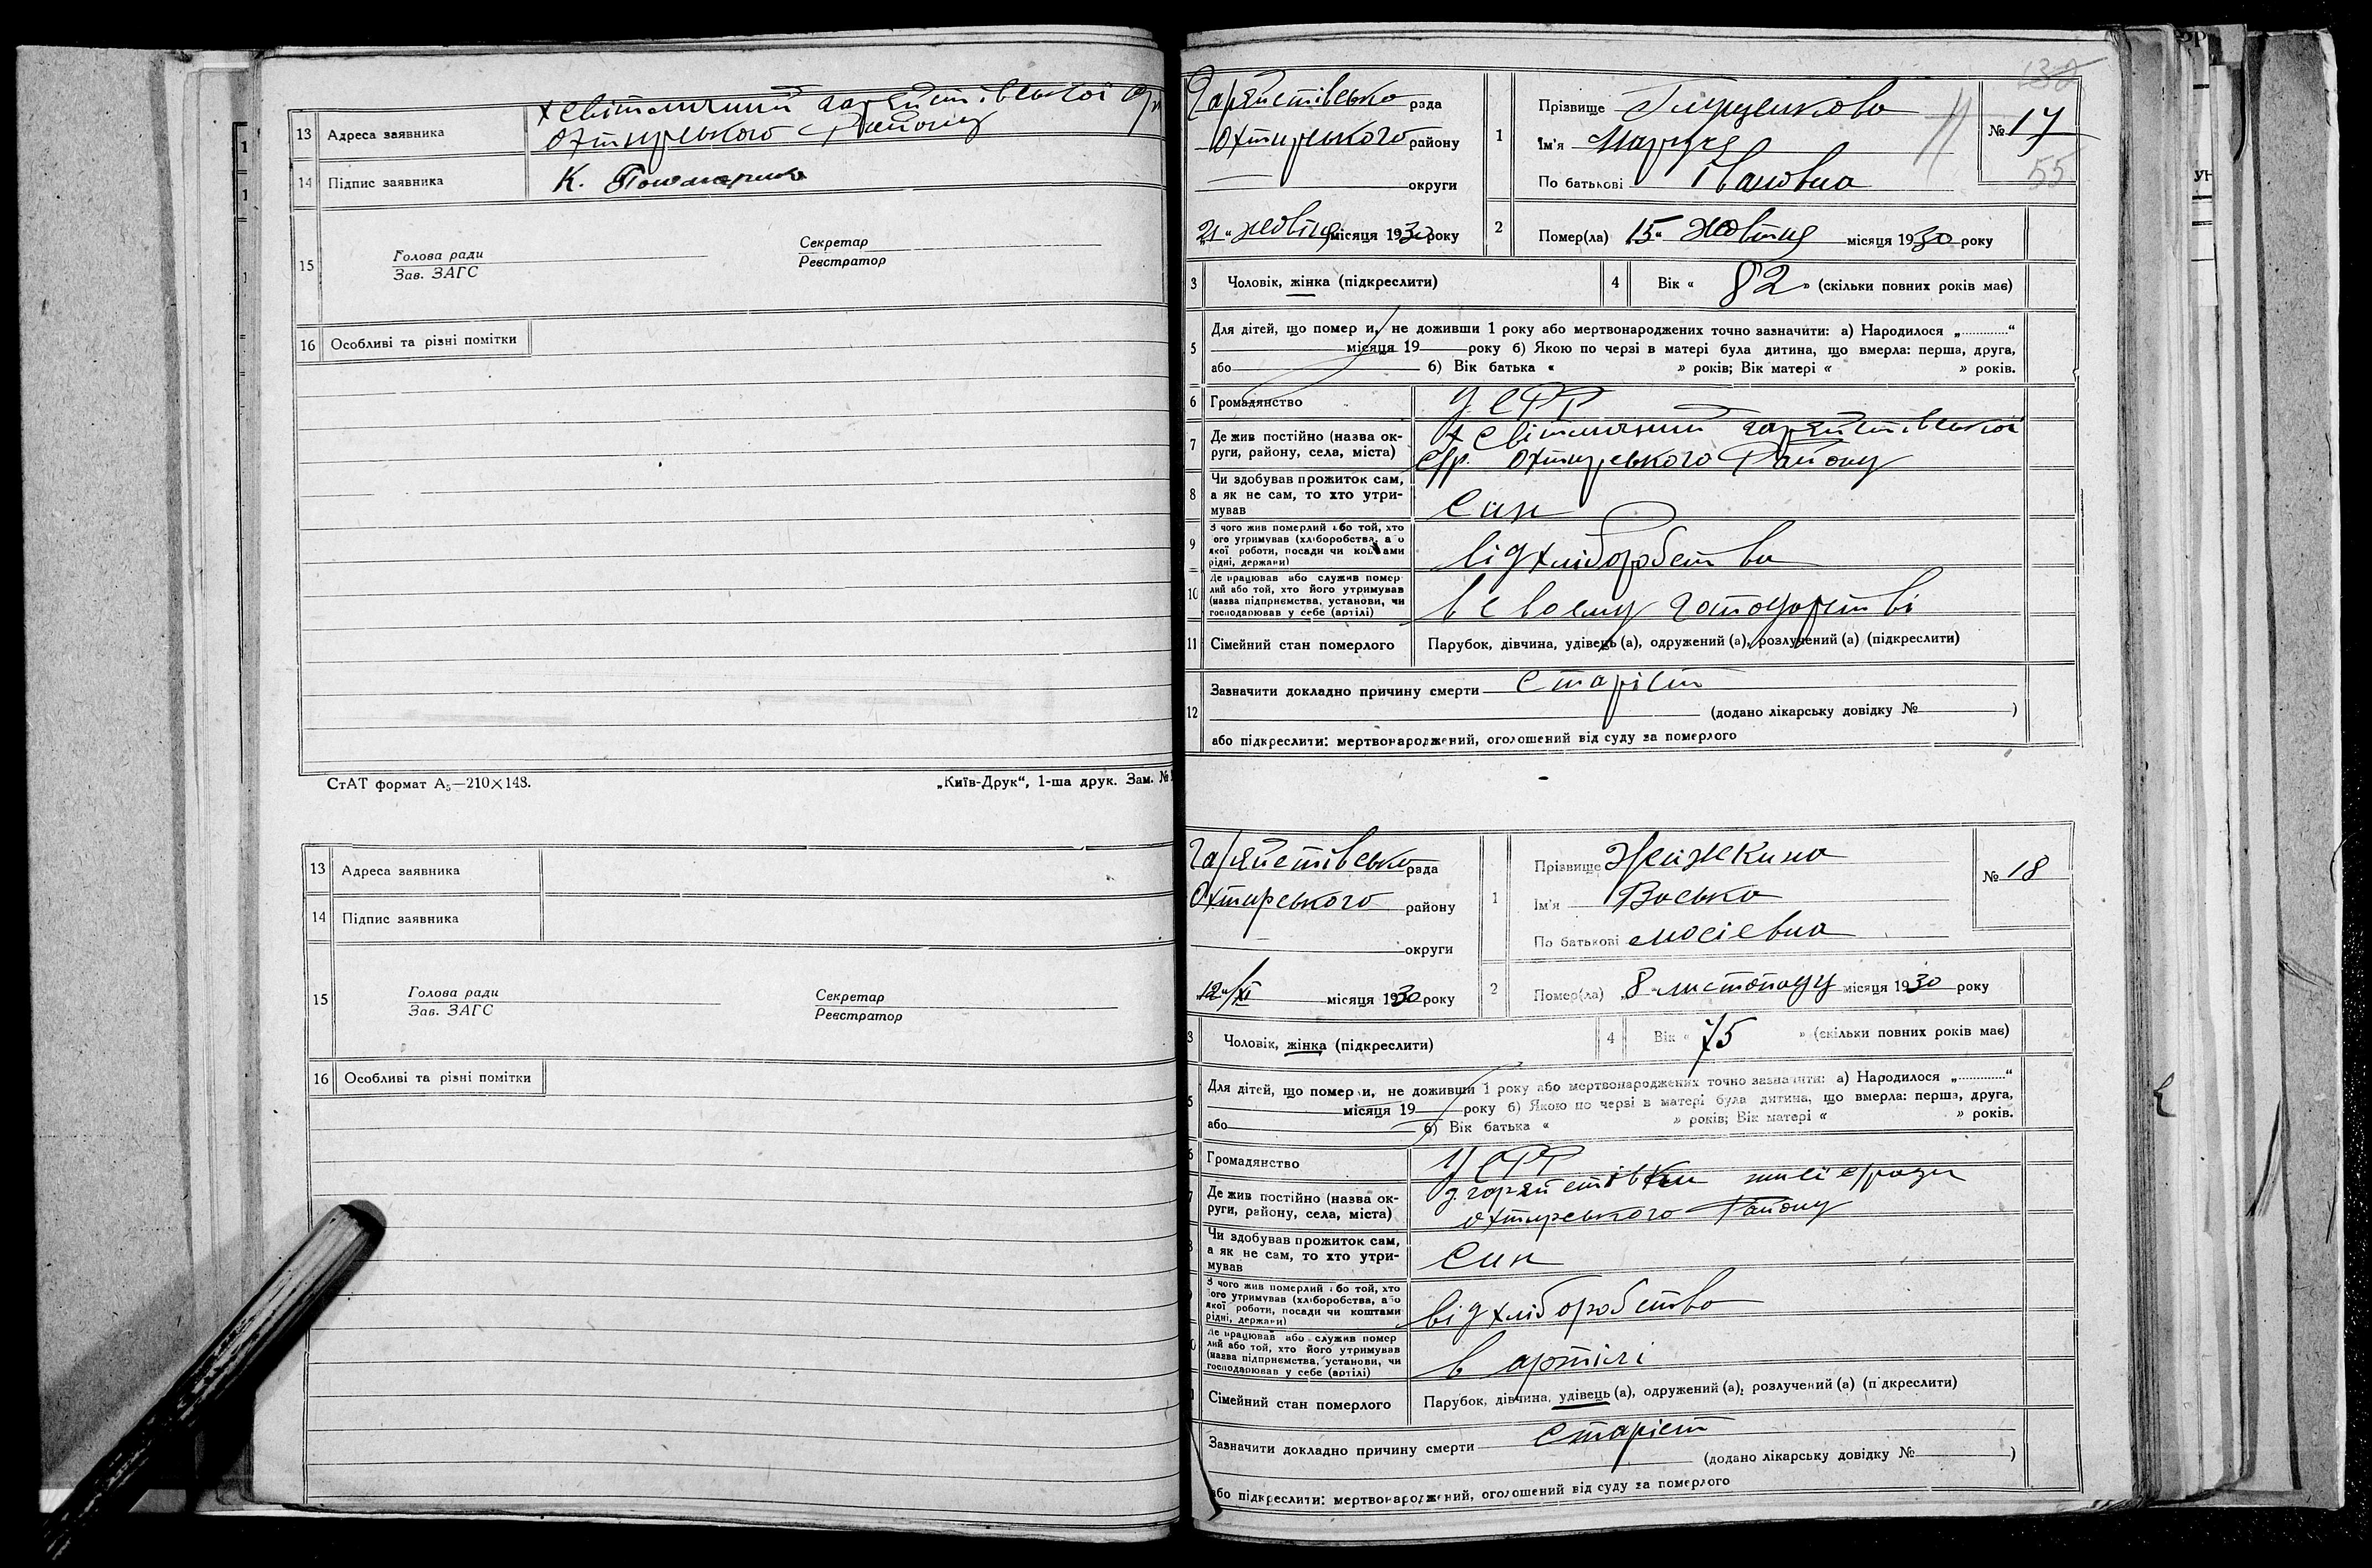 13 Адреса заявника х Світличний гаряйстівської с/р
Охтирського Району
14 Підпис заявника К. Пономаренко
15 Голова ради
Зав. ЗАГС
Секретар
Реєстратор
16 Особливі та різні помітки
СтАТ формат А5—210×148. „Київ-Друк“, 1-ша друк. Зам. №
13 Адреса заявника
14 Підпис заявника
15 Голова ради
Зав. ЗАГС
Секретар
Реєстратор
16 Особливі та різні помітки
132
Гаряйстівсько рада
Охтирського району
округи
21 жовтня місяця 1930 року
1 Прізвище
Ім'я
По батькові Івановна
№ 17
55
2 Помер(ла) „15“ жовтня місяця 1930 року
3 Чоловік, жінка (підкреслити)
4 Вік « 82 » (скільки повних років має)
5 Для дітей, що помер и, не доживши 1 року або мертвонароджених точно зазначити: а) Народилося „............“
місяця 19 року б) Якою по черзі в матері була дитина, що вмерла: перша, друга,
або б) Вік батька « » років; Вік матері « » років.
6 Громадянство УСРР
7 Де жив постійно (назва ок-
руги, району, села, міста)
х Світличний гаряйстівської
с/р. Охтирського Району
8 Чи здобував прожиток сам,
а як не сам, то хто утри-
мував
Син
9 З чого жив померлий або той, хто
його утримував (хліборобства, або
якої роботи, посади чи коштами
рідні, держави)
від хліборобства
10 Де працював або служив помер-
лий або той, хто його утримував
(назва підприємства, установи, чи
господарював у себе (артілі)
в своєму господарстві
11 Сімейний стан померлого Парубок, дівчина, удівець (а), одружений (а), розлучений (а) (підкреслити)
12 Зазначити докладно причину смерти Старіст
(додано лікарську довідку № )
або підкреслити: мертвонароджений, оголошений від суду за померлого
Гаряйстівсько рада
Охтирського району
округи
„12“/XI місяця 1930 року
1 Прізвище Жижкина
Ім'я Васька
По батькові Мосієвна
№ 18
2 Помер(ла) „8“ листопаду місяця 1930 року
3 Чоловік, жінка (підкреслити)
4 Вік « 75 » (скільки повних років має)
5 Для дітей, що помер и, не доживши 1 року або мертвонароджених точно зазначити: а) Народилося „............“
місяця 19 року б) Якою по черзі в матері була дитина, що вмерла: перша, друга,
або б) Вік батька « » років; Вік матері « » років.
6 Громадянство УСРР
Де жив постійно (назва ок-
руги, району, села, міста)
гаряйстівки с/ради
Охтирського Району
Чи здобував прожиток сам,
а як не сам, то хто утри-
мував
Син
З чого жив померлий або той, хто
його утримував (хліборобства, або
якої роботи, посади чи коштами
рідні, держави)
від хліборобство
Де працював або служив помер
лий або той, хто його утримував
(назва підприємства, установи, чи
господарював у себе (артілі)
в артілі
Сімейний стан померлого Парубок, дівчина, удівець (а), одружений (а), розлучений (а) (підкреслити)
Зазначити докладно причину смерти Старіст
(додано лікарську довідку № )
або підкреслити: мертвонароджений, оголошений від суду за померлого